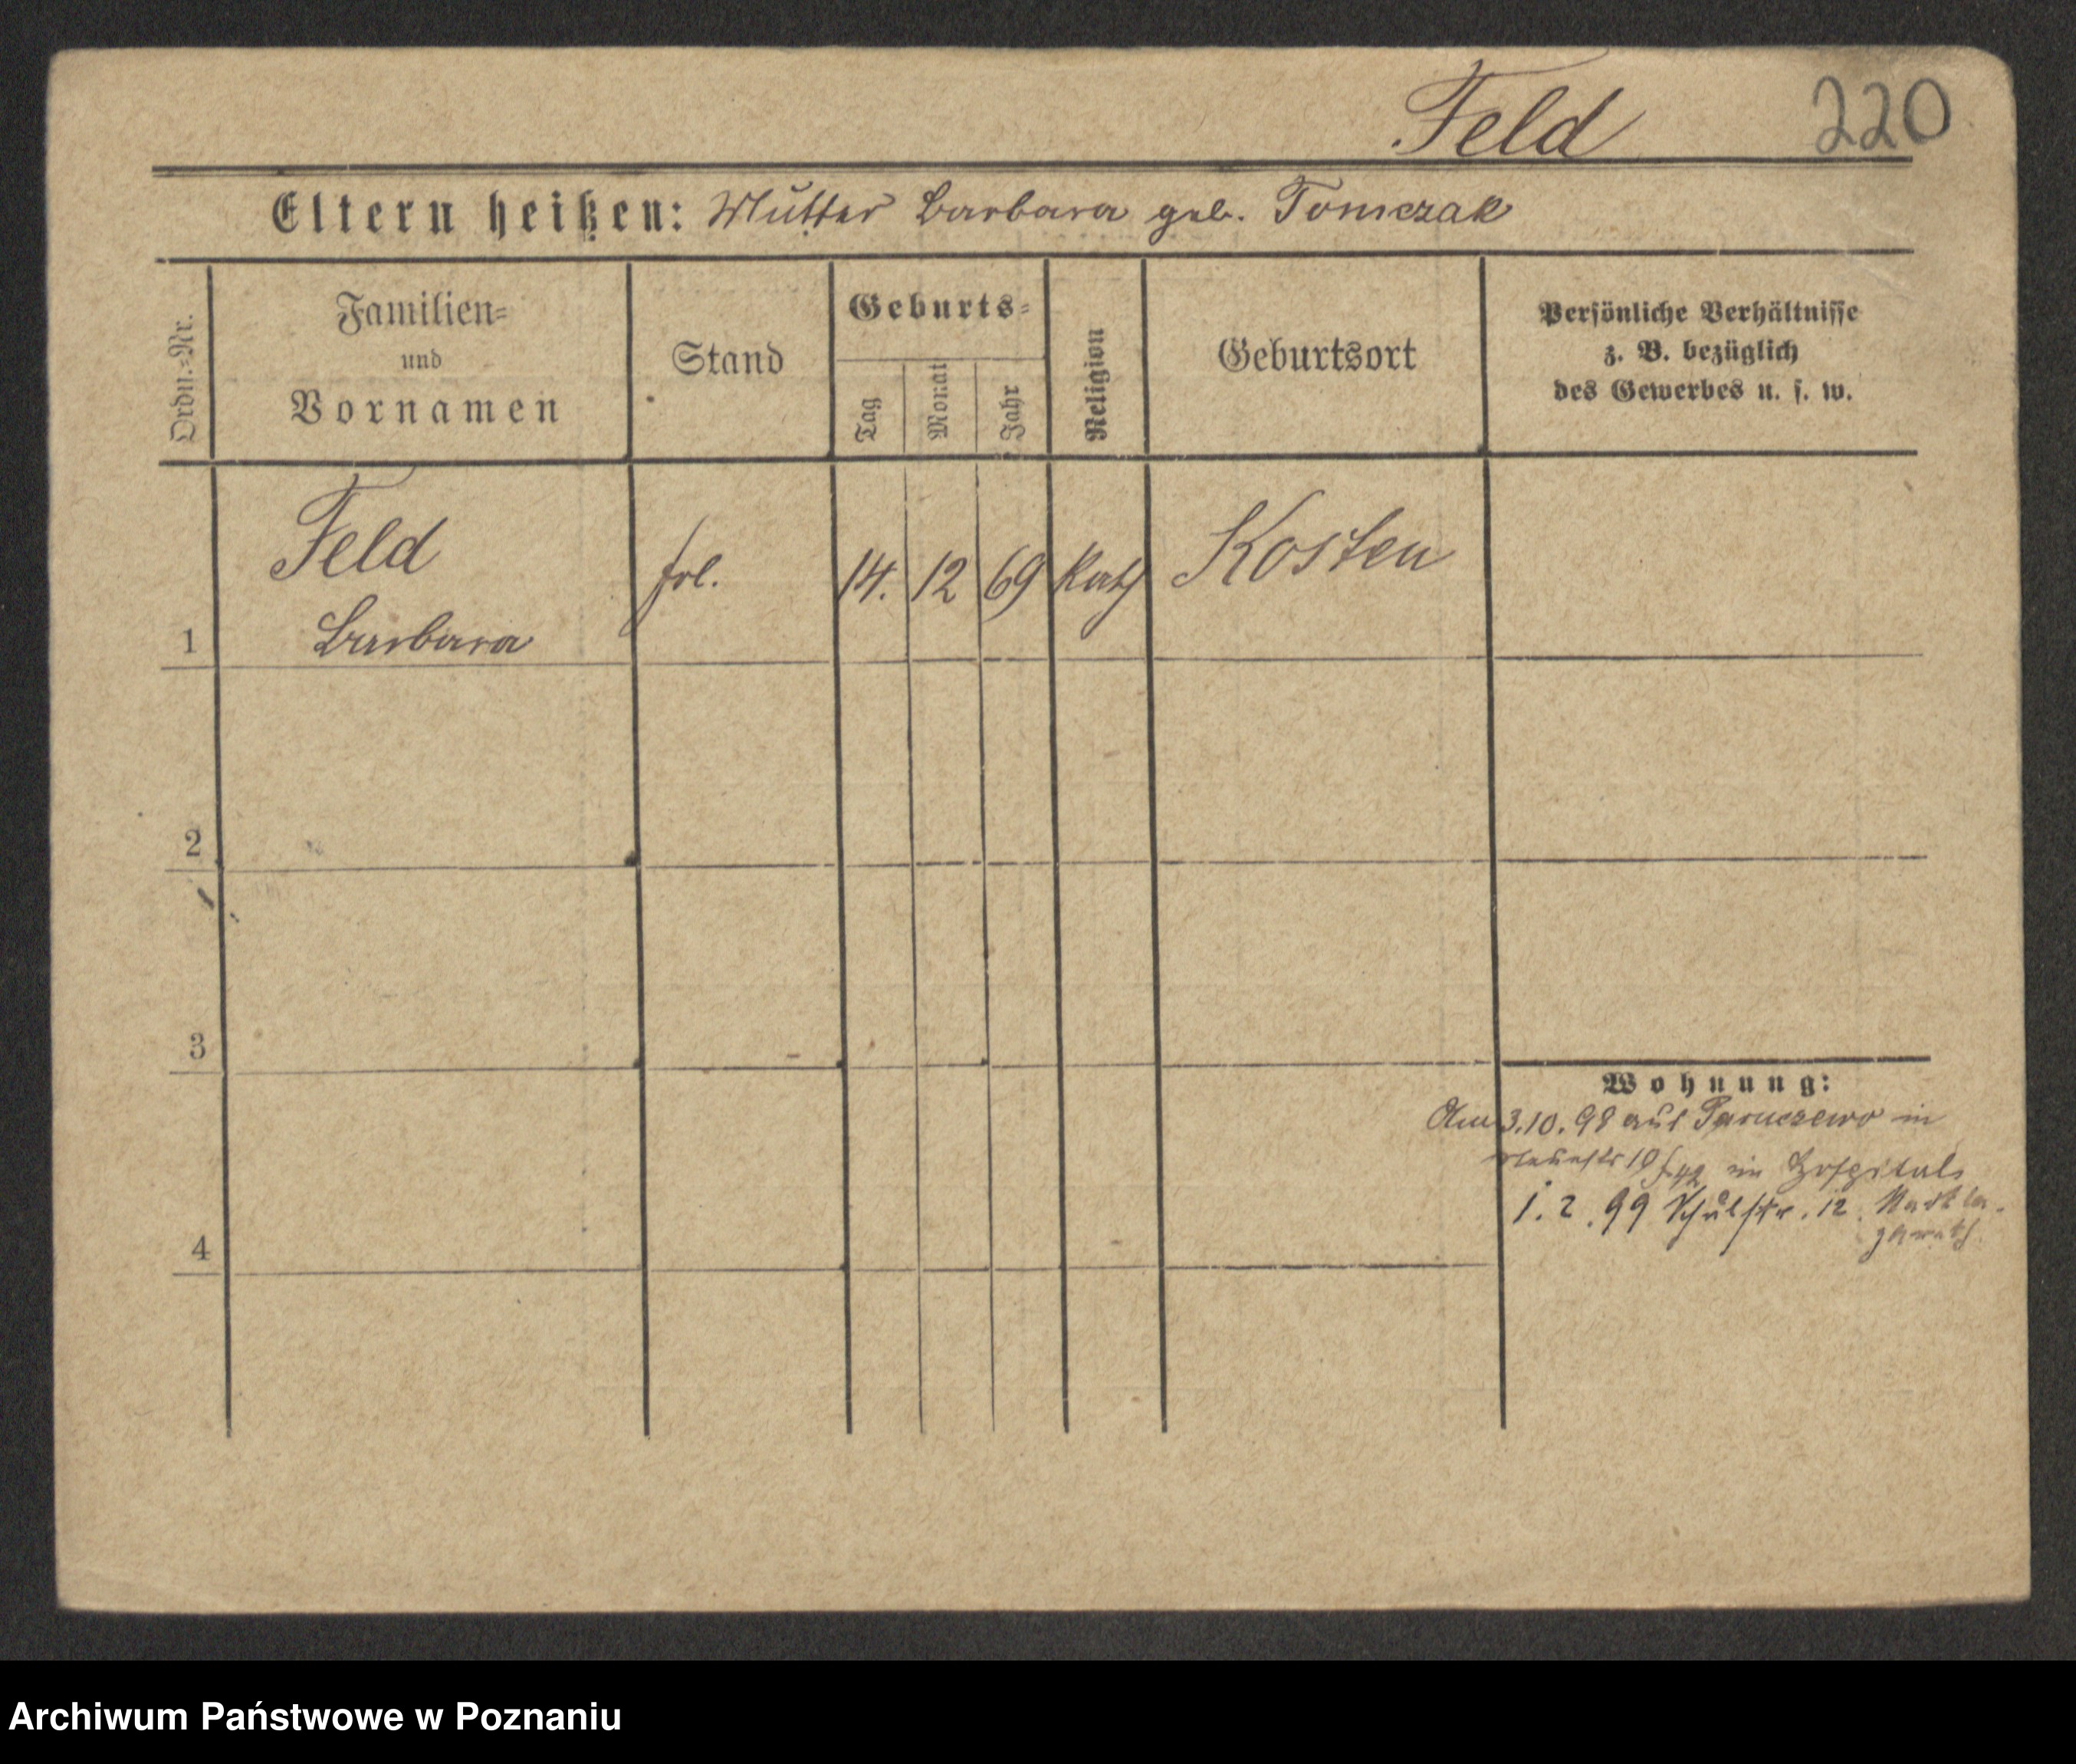 Feld 220
Eltern heißen: Mutter Barbara geb. Tomczak
Ordn.=Nr.
Familien=
und
Vornamen
Stand
Geburts=
Tag
Monat
Jahr
Religion
Geburtsort
Persönliche Verhältnisse
z. B. bezüglich
des Gewerbes u. s. w.
1
Feld
Barbara
frl.
14.
12
69
Kath
Kosten
2
3
4
Wohnung:
Am 3.10.98 aus in
10 im Hospitals
1.2.99 Schulstr. 12.